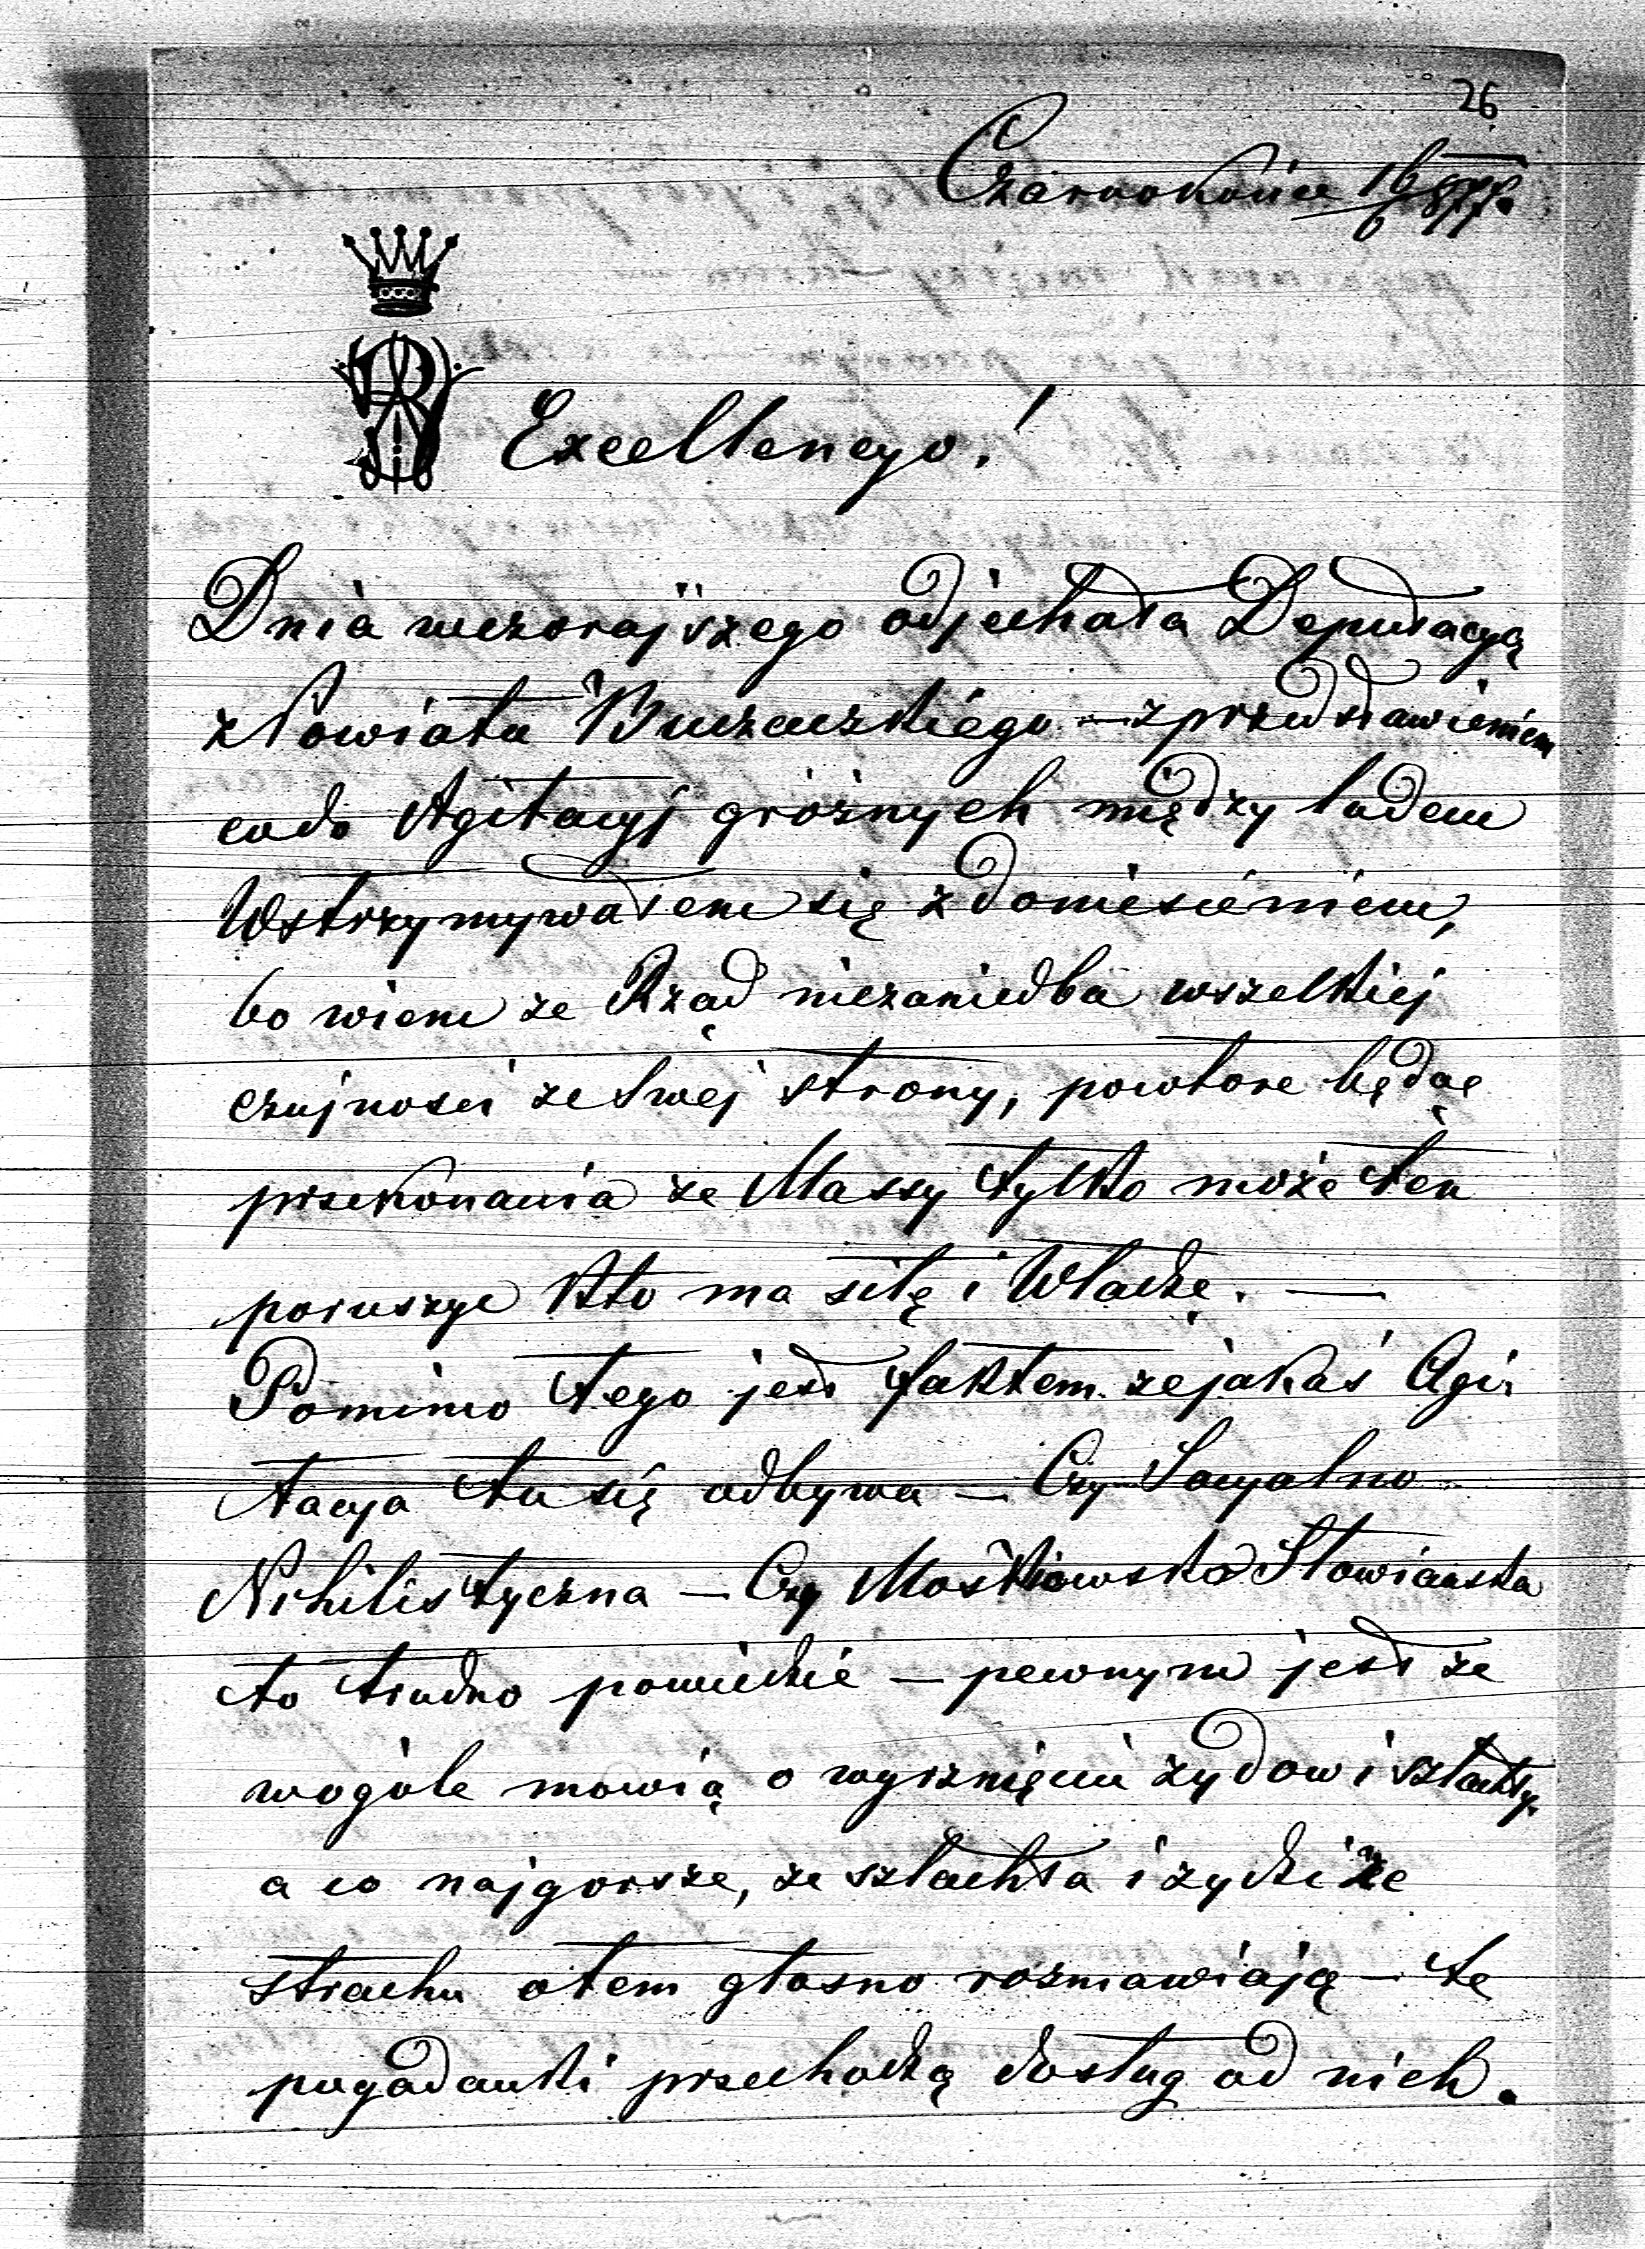 26
Czarnokońce 16/6 877.
Excellencyo!
Dnia wczorajszego odjechała Deputacyą
z Powiatu Buczackiego – z przedstawieniem
codo Agitacyj gróżnych między ludem
Wstrzymywałem się z doniesieniem,
bo wiem ze Rząd niezaniedba wszelkiej
czujnosci ze swej strony, powtore będąc
przekonania ze Massy tylko może ten
poruszyc kto ma siłę i Władzę. —
Pomimo tego jest faktem ze jakaś Agi-
tacya tu się odbywa – Czy Socyalno
Nihilistyczna – Czy Moskiowsko Słowiańska
to trudno powiedzieć – pewnym jest ze
wogóle mowią o wyrznięciu żydow i szlachty,
a co najgorsze, ze szlachta i zydzi ze
strachu otem głosno rozmawiają – te
pogadanki przechodzą do sług od nich.